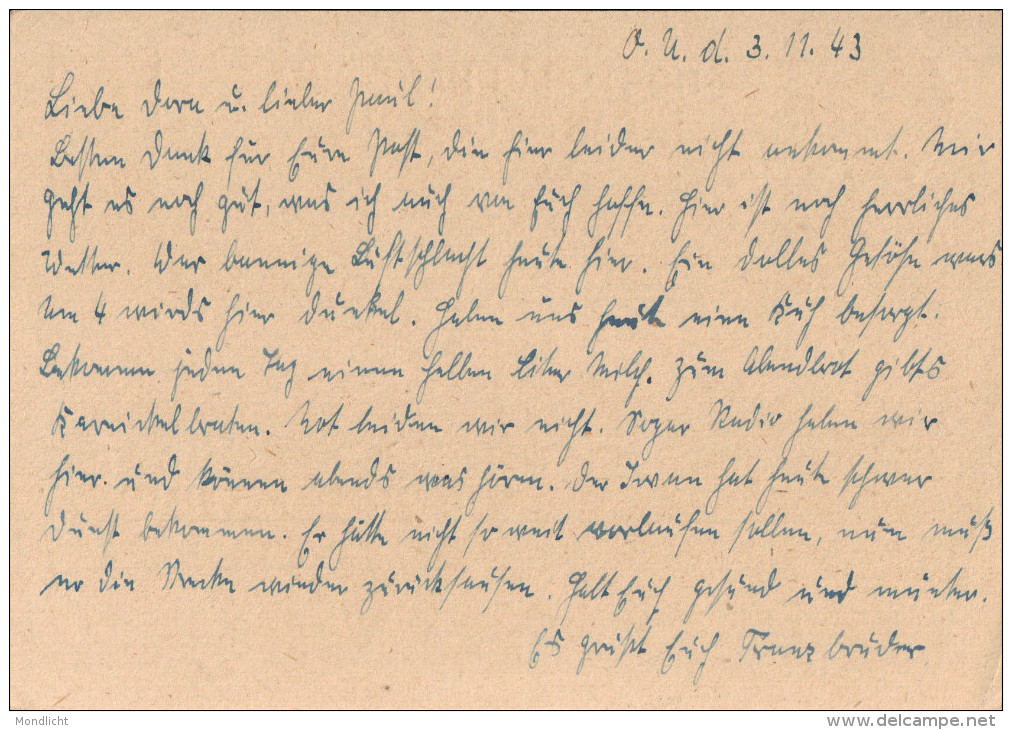 O. U. d. 3. 11. 43
Liebe Dora u. lieber Paul!
Besten Dank für Eure Post, die hier leider nicht ankommt. Mir
geht es noch gut, was ich auch von Euch hoffe. Hier ist noch herrliches
Wetter. War bannige Luftschlacht heute hier. Ein dolles Getöse wars
Um 4 wirds hier dunkel. Haben uns heute eine Kuh besorgt.
Bekommen jeden Tag einen halben Liter Milch. Zum Abendbrot gibts
Karnickelbraten. Not leiden wir nicht. Sogar Radio haben wir
hier und können abends was hören. Der Iwan hat heute schwer
Dunst bekommen. Er hätte nicht so weit vorlaufen sollen, nun muß
er die Strecke wieder zurücksausen. Halt Euch gesund und munter.
Es grüßt Euch Franz bruder.
Mondlicht
delcampe.net